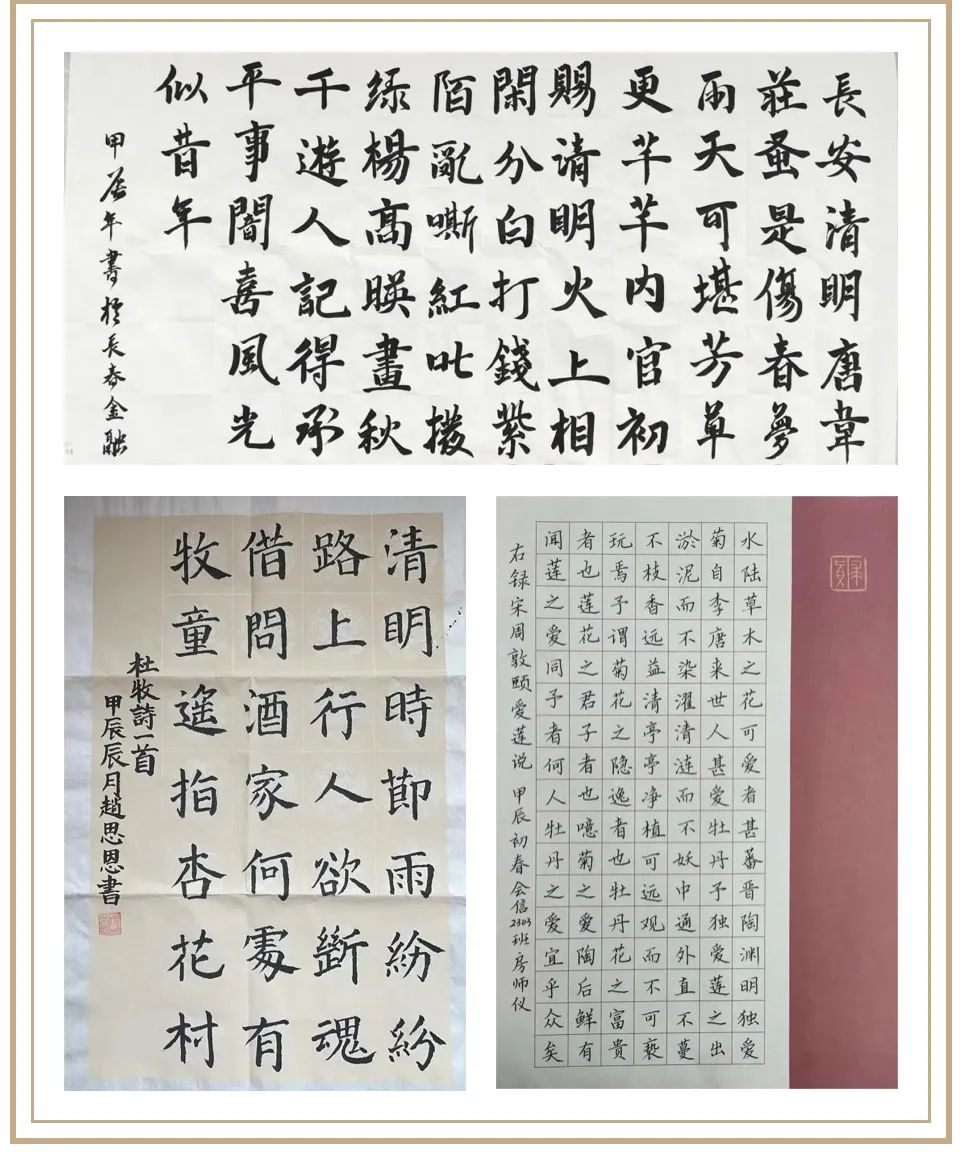 長安清明唐韋
莊蚤是傷春夢
雨天可堪芳草
更芊芊内官初
賜清明火上相
閑分白打錢紫
陌亂嘶紅叱撥
緑楊高暎畫秋
千遊人記得承
平事闇喜風光
似昔年
甲辰年書於長春金融
清明時節雨紛紛
路上行人欲斷魂
借問酒家何處有
牧童遥指杏花村
杜牧詩一首
甲辰辰月趙思恩書
水陆草木之花可爱者甚蕃晋陶渊明独爱
菊自李唐来世人甚爱牡丹予独爱莲之出
淤泥而不染濯清涟而不妖中通外直不蔓
不枝香远益清亭亭净植可远观而不可亵
玩焉予谓菊花之隐逸者也牡丹花之富贵
者也莲花之君子者也噫菊之爱陶后鲜有
闻莲之爱同予者何人牡丹之爱宜乎众矣
右录宋周敦颐爱莲说 甲辰初春会信2303班房师仪